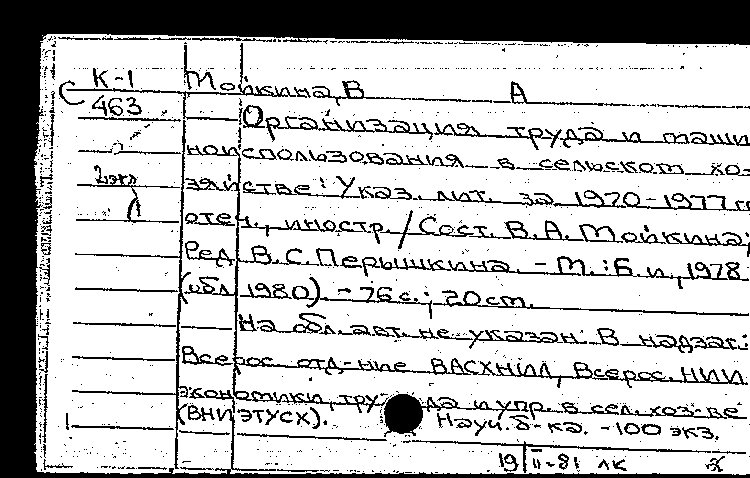 К-1 Мойкина, В А
С 463 Организация труда и маши-
ноиспользования в сельском хо-
2 экз зяйстве: Указ. лит. за 1970-1977 гг
отеч., иностр. / Сост. В.А. Мойкина;
Ред. В.С. Перышкина. - М.: Б.и., 1978
(обл. 1980). - 76 с.; 20 см.
На обл. авт. не указан. В надзаг.:
Всерос. отд-ние ВАСХНИЛ, Всерос. НИИ
экономики, труда и упр. в сел. хоз-ве
(ВНИЭТУСХ). Науч. б-ка. - 100 экз.
19/II-81 лк